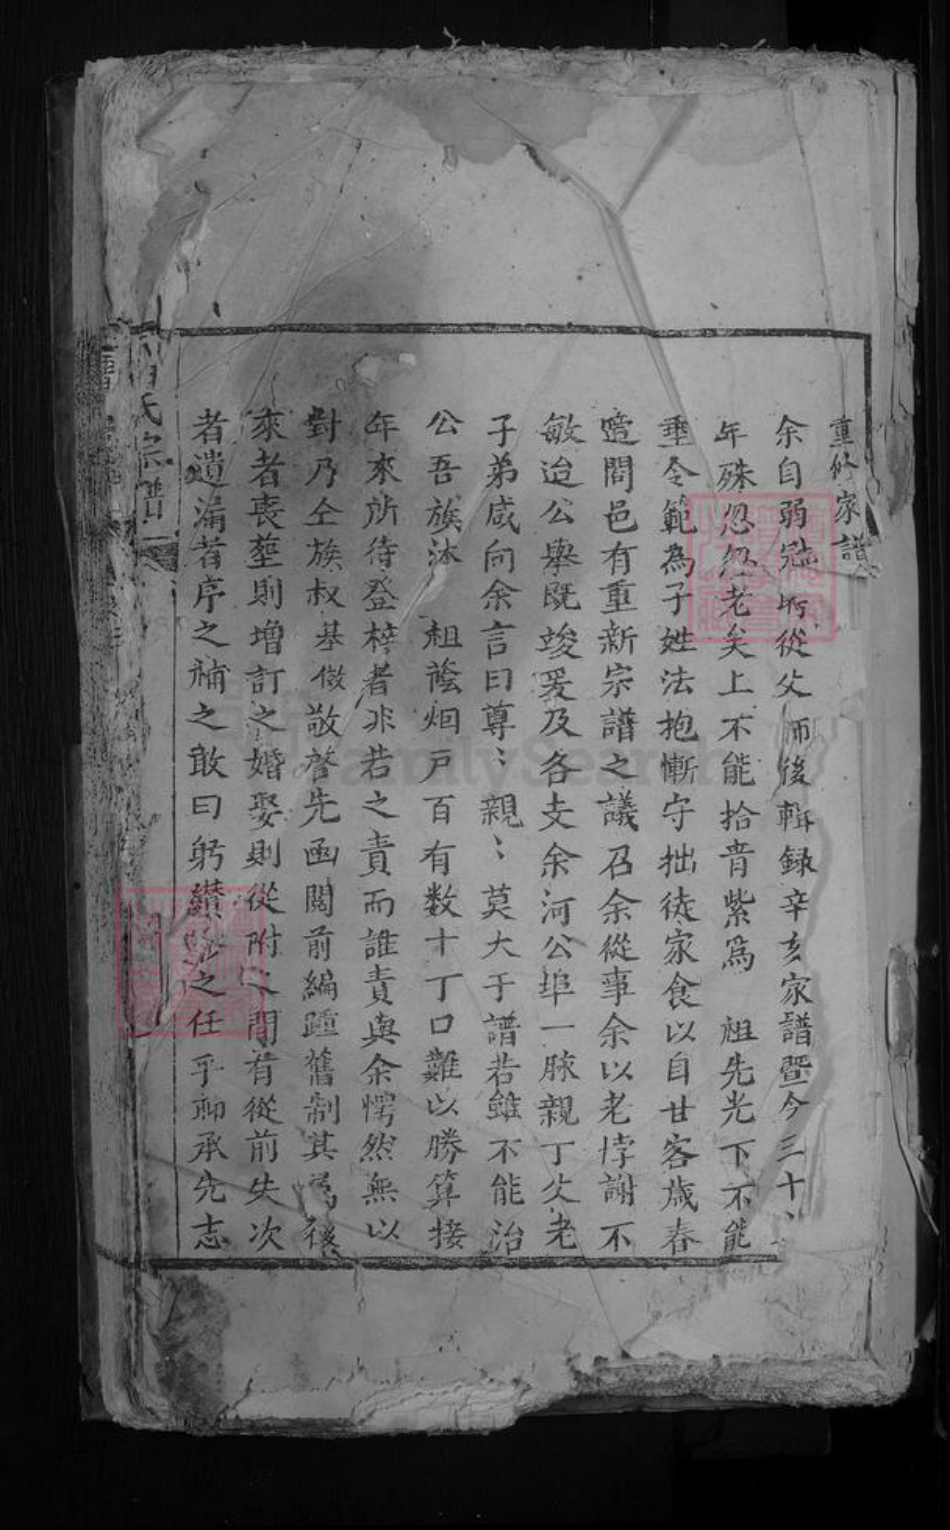 重修家譜
余自弱冠所從父師後輯録辛亥家譜暨今三十
年殊忽忽老矣上不能拾青紫爲　祖先光下不能
垂令範為子姓法抱慚守拙徒家食以自甘客歲春
噫闔邑有重新宗譜之議召余從事余以老悖謝不
敏迨公舉既竣爰及各支余河公埠一脉親丁父老
子弟咸向余言曰尊〻親〻莫大于譜若雖不能治
公吾族沐　祖蔭烟戸百有数十丁口難以勝算接
年來所待登梓者非若之責而誰責與余愕然無以
對乃仝族叔基儆敬啓先函閲前編踵舊制其爲後
來者喪塟則增訂之婚娶則從附之間有從前失次
者遺漏者序之補之敢曰躬纉之任乎聊承先志
氏宗譜
FamilySearch